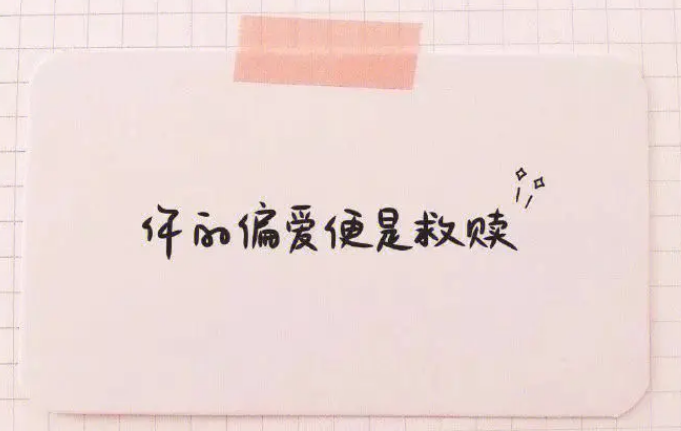 你的偏爱便是救赎